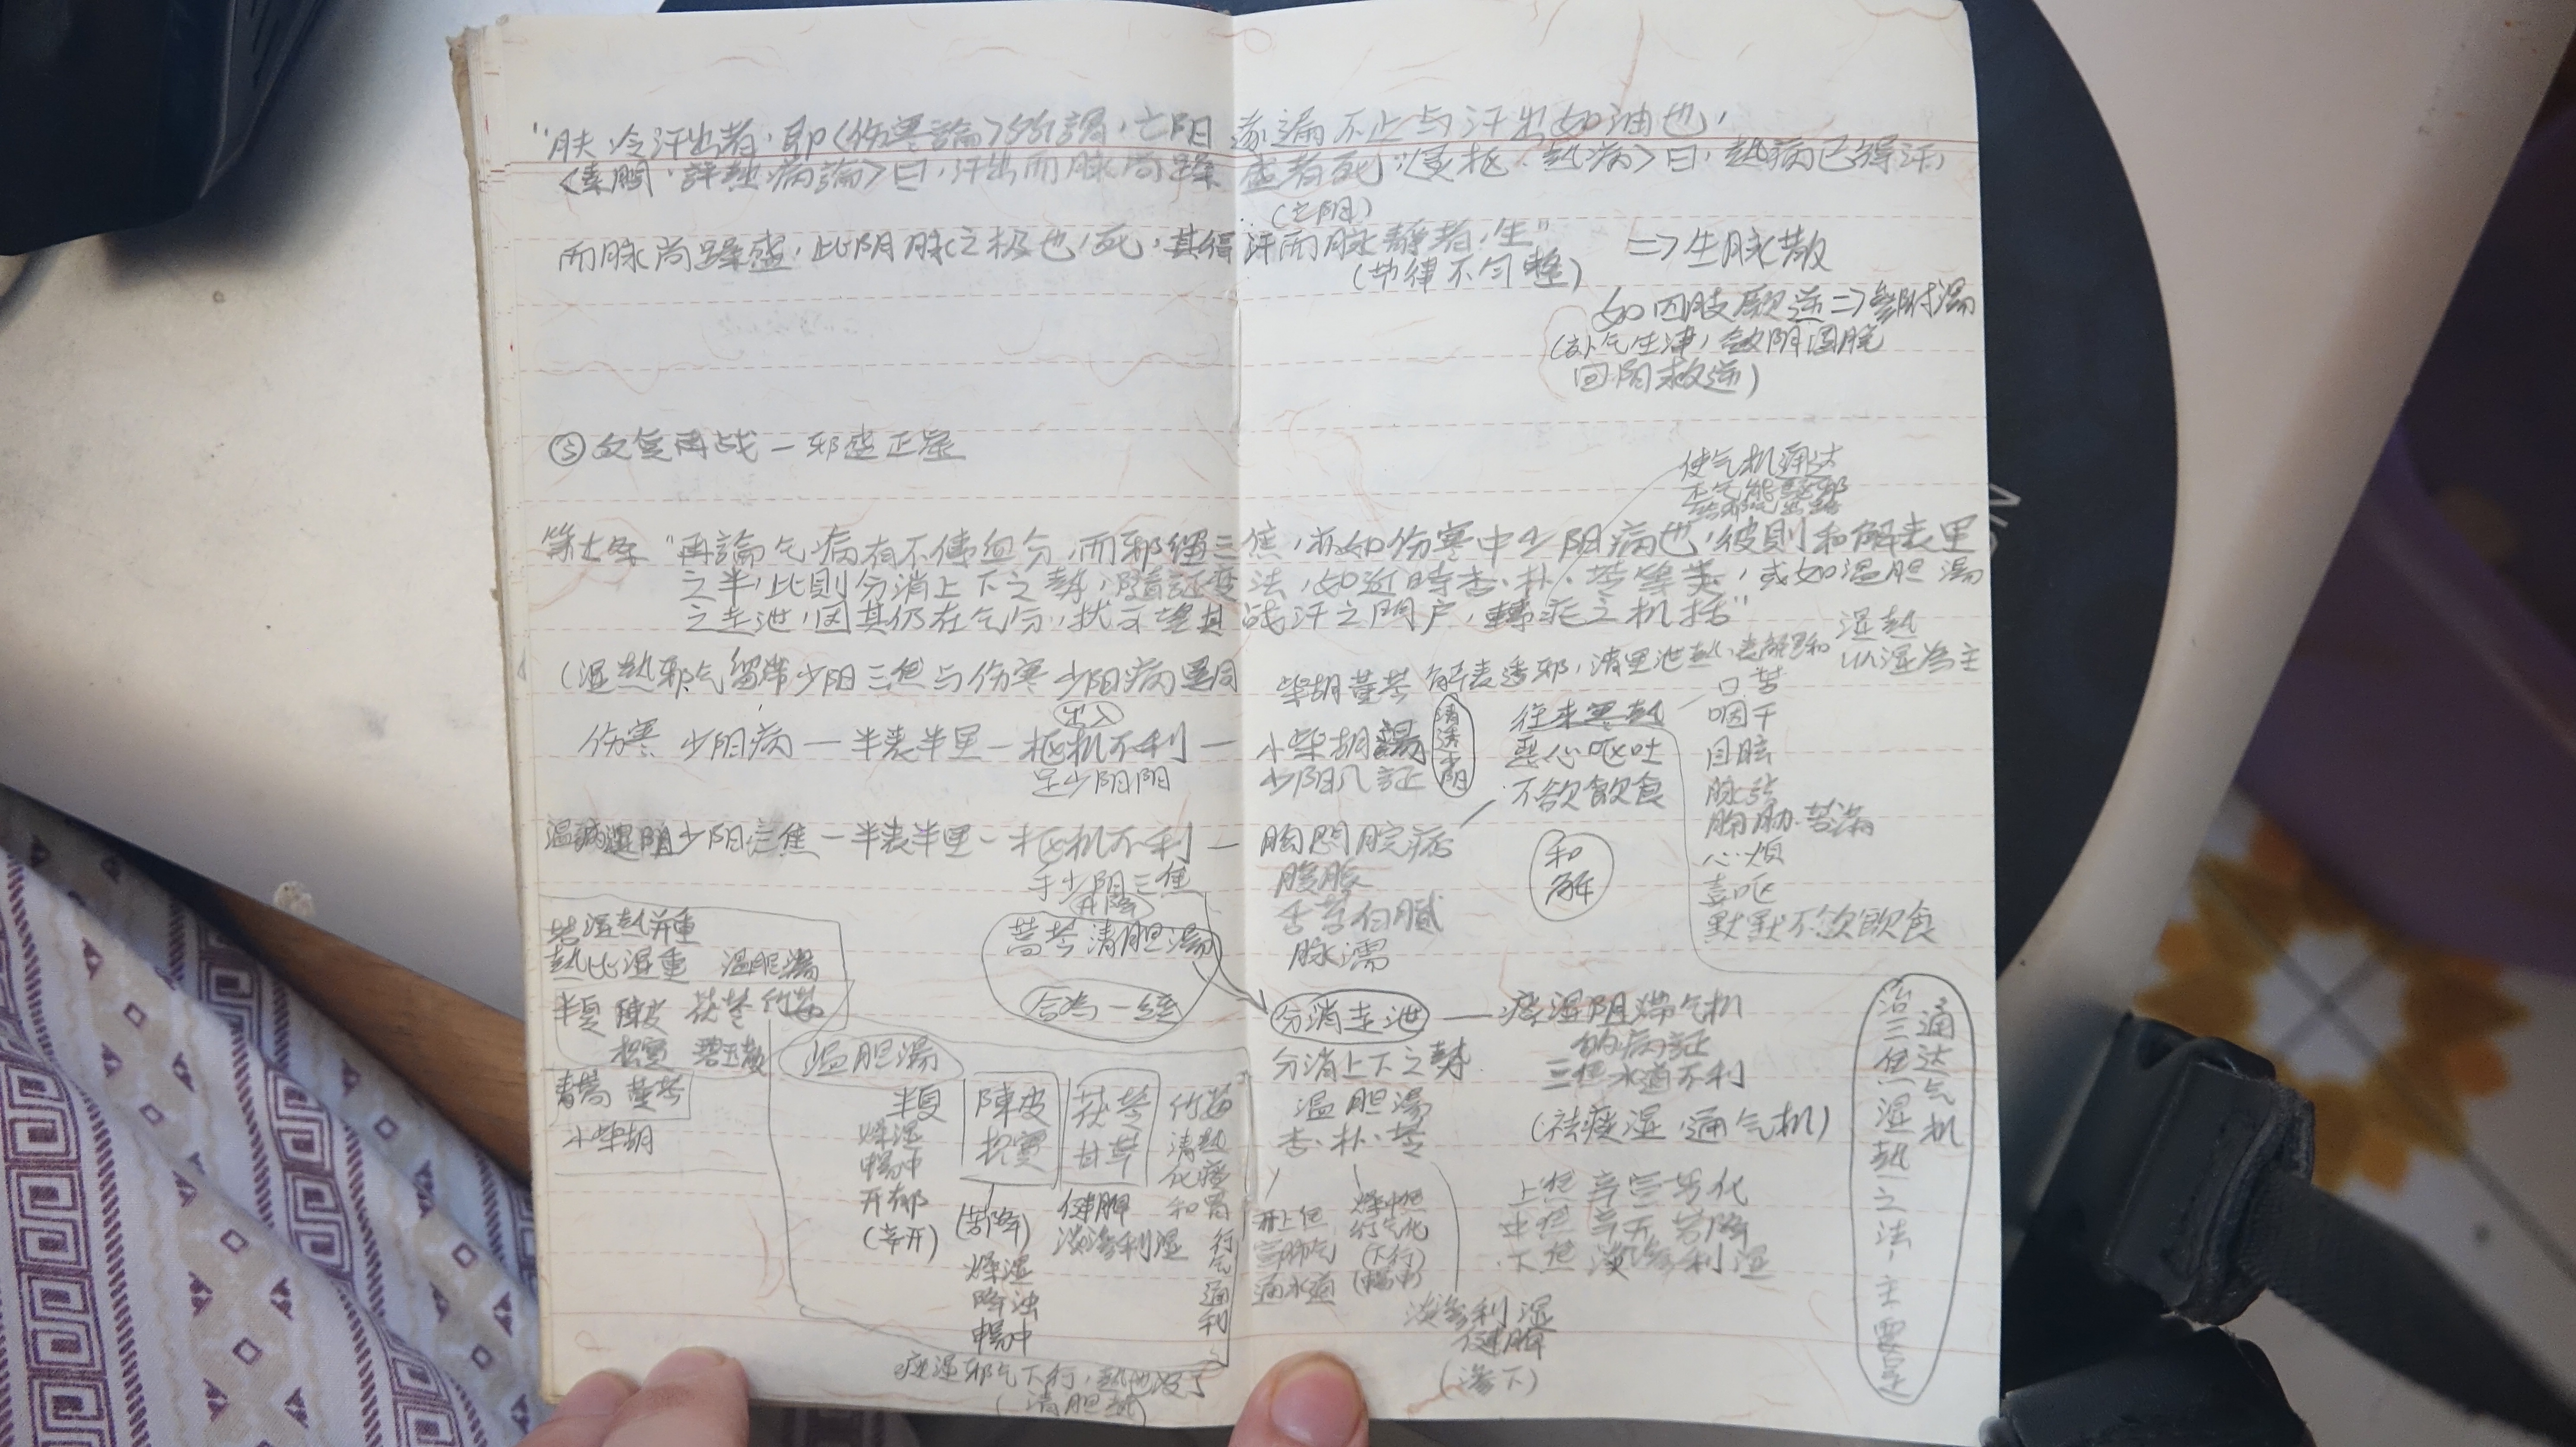 "肤冷汗出者,即<伤寒論>所謂,亡阳遂漏不止与汗出如油也,
<素問·評熱病論>曰,汗出而脉尚躁盛者死,<灵枢·熱病>曰,熱病已得汗,
(亡阴)
而脉尚躁盛,此阴脉之极也,死,其得汗而脉静者,生" => 生脉散
(节律不匀整)
如四肢厥逆=>參附湯
(补气生津,敛阴固脱
回阳救逆)
③ 反复再战 — 邪盛正虚
使气机通达
正气能驱邪
給邪气出路
第七条 "再論气病有不傳血分,而邪留三焦,亦如伤寒中少阳病也,彼則和解表里
之半,此則分消上下之勢,隨証变法,如近時杏、朴、苓等类,或如温胆湯
之走泄,因其仍在气分,犹可望其战汗之門户,轉疟之机括"
湿熱
以湿為主
(湿熱邪气留滞少阳三焦与伤寒少阳病異同
柴胡黄芩 解表透邪,清里泄熱,表解里和
伤寒 少阳病 — 半表半里 — 枢机不利 — 小柴胡湯
出入
足少阳
少阳八証
清透少阳
往来寒熱
恶心呕吐
不欲飲食
口苦
咽干
目眩
脉弦
胸胁苦满
心烦
喜呕
默默不欲飲食
温病湿阻少阳三焦 — 半表半里 — 枢机不利 — 胸悶脘痞
手少阳三焦
升降
腹胀
舌苔白腻
脉濡
和解
蒿芩清胆湯
合為一統
若湿熱并重
熱比湿重 温胆湯
半夏 陳皮 茯苓 竹茹
枳實 碧玉散
青蒿 黄芩
小柴胡
温胆湯
半夏
燥湿
暢中
开郁
(辛开)
陳皮
枳實
(苦降)
燥湿
降浊
暢中
茯苓
甘草
健脾
淡滲利湿
竹茹
清熱
化痰
和胃
行气通利
痰湿邪气下行,熱也没了
(清胆熱)
分消走泄 — 痰湿阻滞气机
的病証
三焦水道不利
(祛痰湿,通气机)
分消上下之勢
温胆湯
杏、朴、苓
开上焦
宣肺气
通水道
燥中焦
行气化
(下行)
(暢中)
淡滲利湿
健脾
(滲下)
上焦 辛宣芳化
中焦 辛开苦降
下焦 淡滲利湿
治三焦湿熱之法,主要是
通达气机